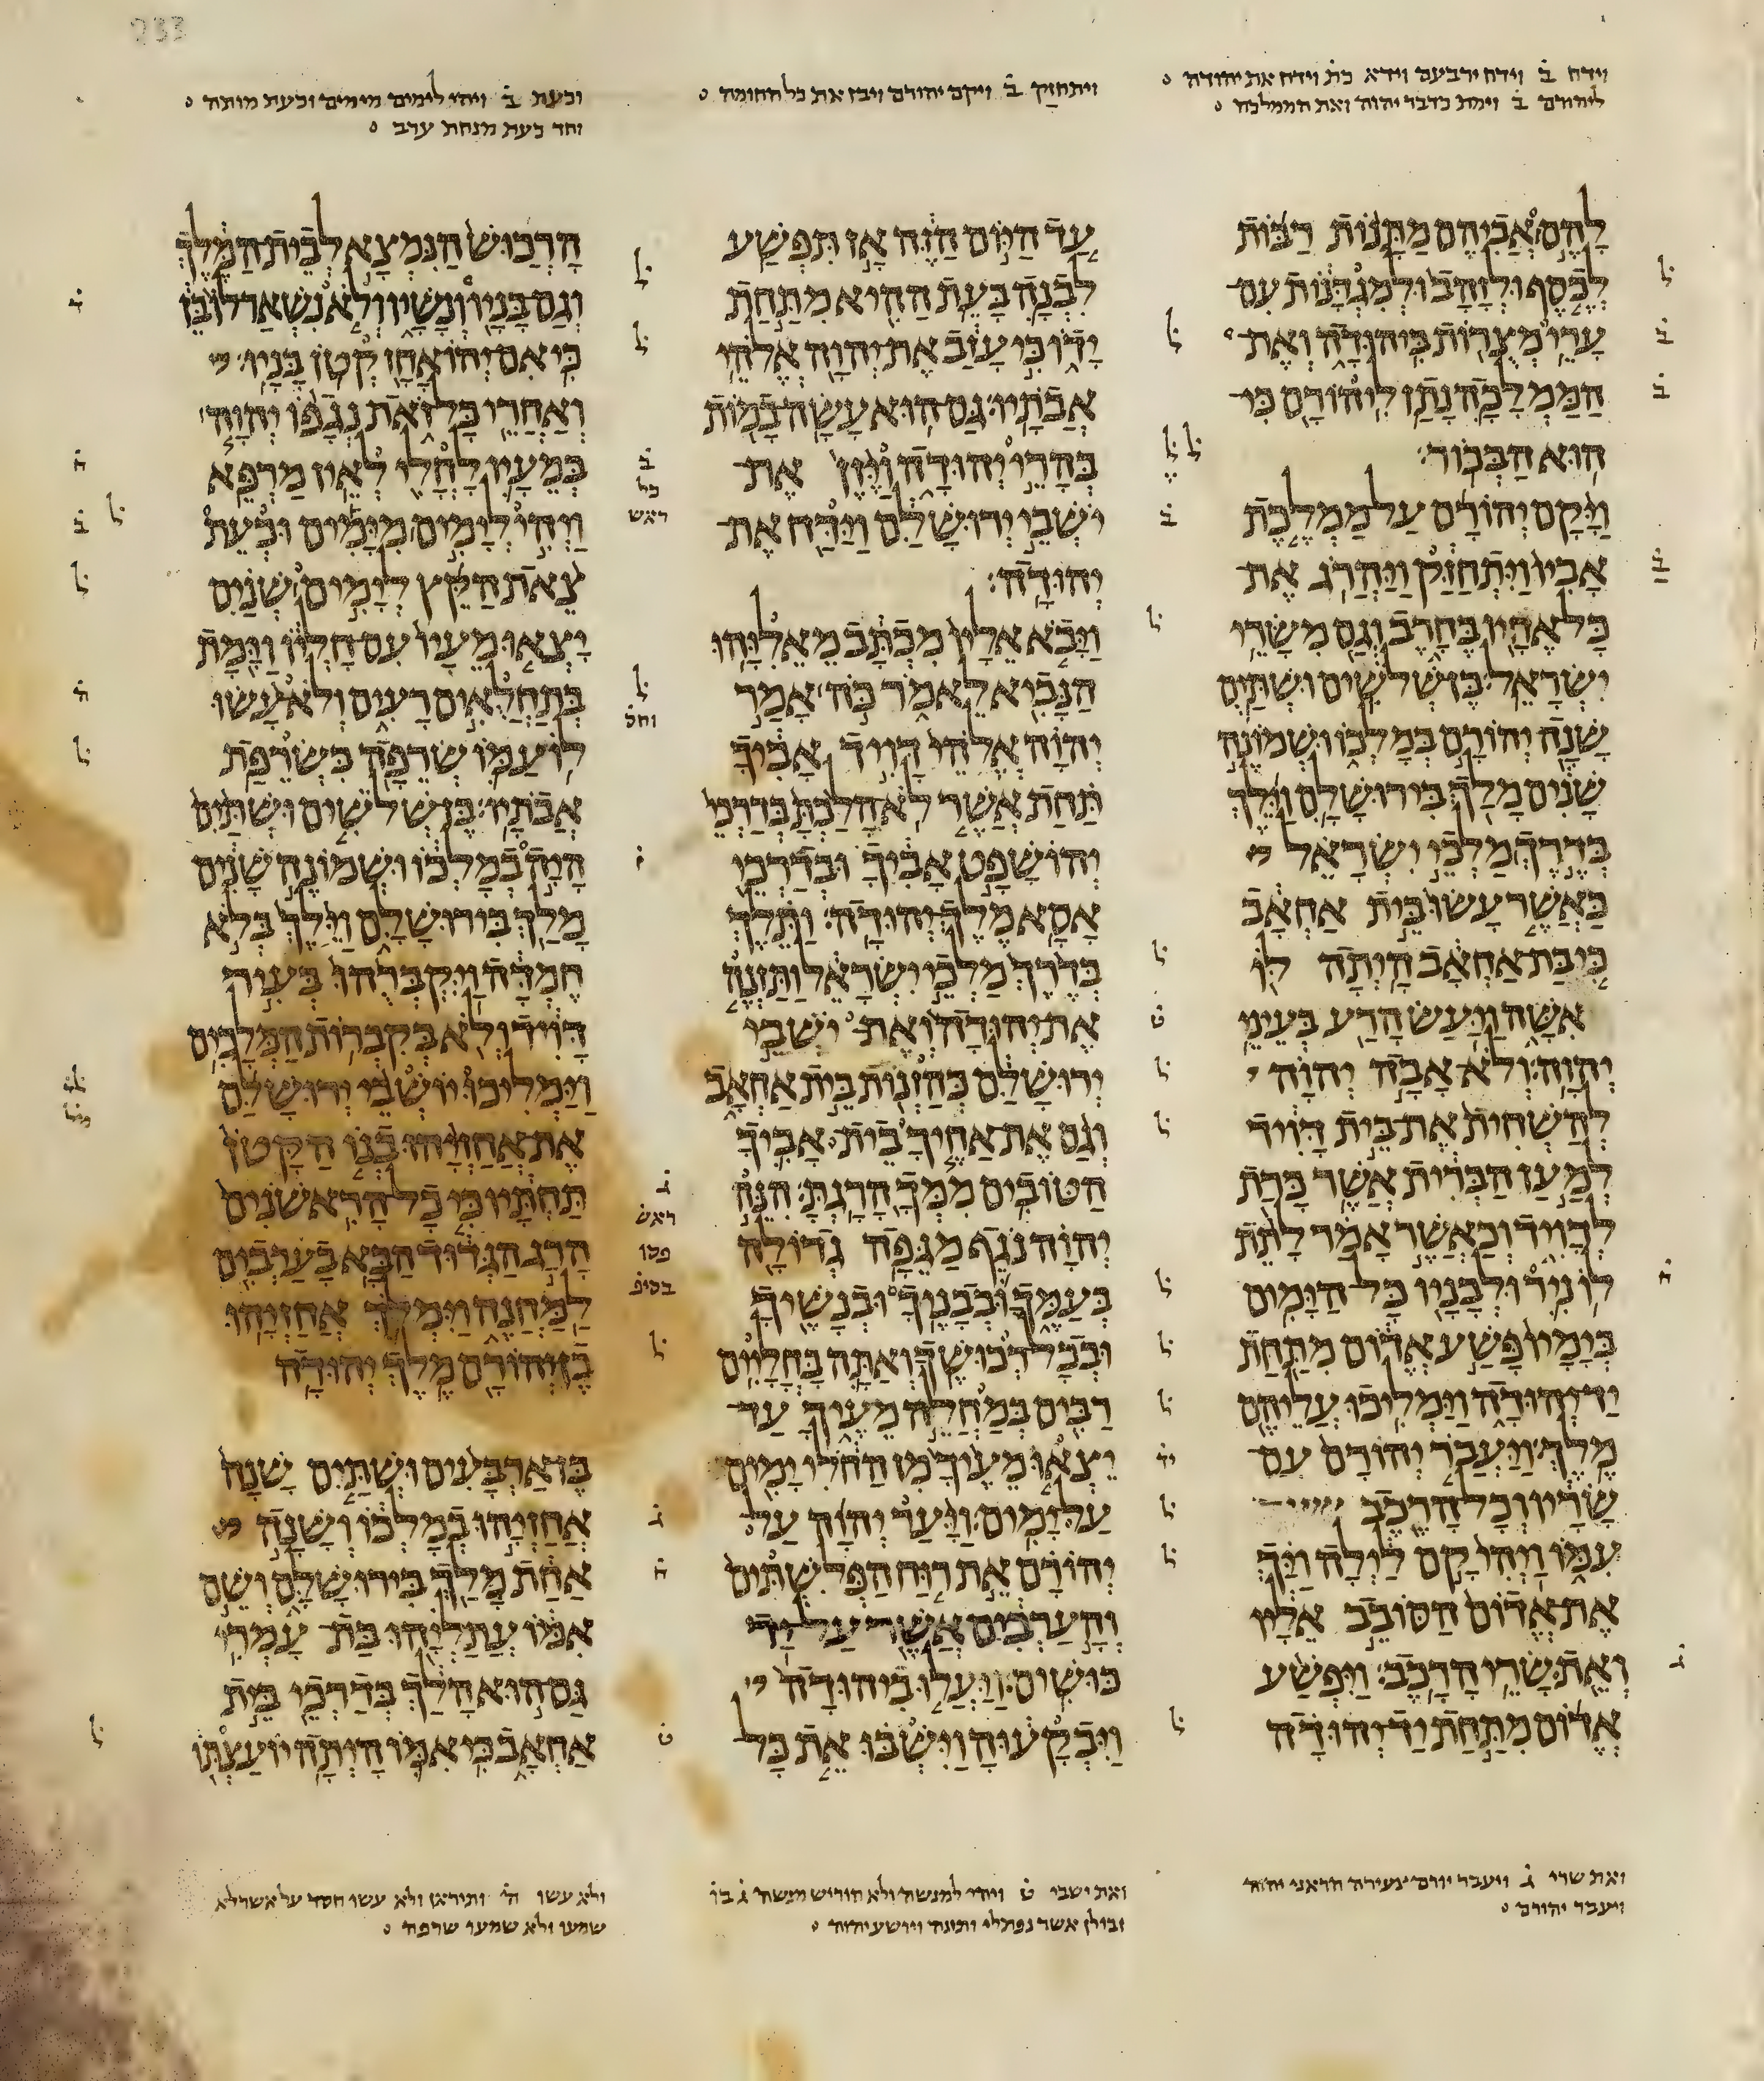 וידח ב וידח ירבעם כת וידח את יהודה
ליהורם ב וימת כדבר יהוה ואת הממלכה
ויתחזק ב ויקם יהורם ויבן את כל החומה
וכעת ב ויהי לימים מימים וכעת מותה
וחד כעת מנחת ערב
להם אביהם מתנות רבות
לכסף ולזהב ולמגדנות עם
ערי מצרות ביהודה ואת
הממלכה נתן ליהורם כי
הוא הבכור׃
ויקם יהורם על ממלכת
אביו ויתחזק ויהרג את
כל אחיו בחרב וגם משרי
ישראל׃ בן שלשים ושתים
שנה יהורם במלכו ושמונה
שנים מלך בירושלם וילך
בדרך מלכי ישראל
כאשר עשו בית אחאב
כי בת אחאב היתה לו
אשה ויעש הרע בעיני
יהוה׃ ולא אבה יהוה
להשחית את בית דויד
למען הברית אשר כרת
לדויד וכאשר אמר לתת
לו ניר ולבניו כל הימים׃
בימיו פשע אדום מתחת
יד יהודה וימליכו עליהם
מלך׃ ויעבר יהורם עם
שריו וכל הרכב
עמו ויהי קם לילה ויך
את אדום הסובב אליו
ואת שרי הרכב׃ ויפשע
אדום מתחת יד יהודה
עד היום הזה אז תפשע
לבנה בעת ההיא מתחת
ידו כי עזב את יהוה אלהי
אבתיו׃ גם הוא עשה במות
בהרי יהודה ויזן את
ישבי ירושלם וידח את
יהודה׃
ויבא אליו מכתב מאליהו
הנביא לאמר כה אמר
יהוה אלהי דויד אביך
תחת אשר לא הלכת בדרכי
יהושפט אביך ובדרכי
אסא מלך יהודה׃ ותלך
בדרך מלכי ישראל ותזנה
את יהודה ואת ישבי
ירושלם כהזנות בית אחאב
וגם את אחיך בית אביך
הטובים ממך הרגת׃ הנה
יהוה נגף מגפה גדולה
בעמך ובבניך ובנשיך
ובכל רכושך׃ ואתה בחליים
רבים במחלה מעיך עד
יצאו מעיך מן החלי ימים
על ימים׃ ויער יהוה על
יהורם את רוח הפלשתים
והערבים אשר על יד
כושים׃ ויעלו ביהודה
ויבקעוה וישבו את כל
הרכוש הנמצא לבית המלך
וגם בניו ונשיו ולא נשאר לו בן
כי אם יהואחז קטן בניו׃
ואחרי כל זאת נגפו יהוה
במעיו לחלי לאין מרפא׃
ויהי לימים מימים וכעת
צאת הקץ לימים שנים
יצאו מעיו עם חליו וימת
בתחלאים רעים ולא עשו
לו עמו שרפה כשרפת
אבתיו׃ בן שלשים ושתים
היה במלכו ושמונה שנים
מלך בירושלם וילך בלא
חמדה ויקברהו בעיר
דויד ולא בקברות המלכים׃
וימליכו יושבי ירושלם
את אחזיהו בנו הקטן
תחתיו כי כל הראשנים
הרג הגדוד הבא בערבים
למחנה וימלך אחזיהו
בן יהורם מלך יהודה׃
בן ארבעים ושתים שנה
אחזיהו במלכו ושנה
אחת מלך בירושלם ושם
אמו עתליהו בת עמרי׃
גם הוא הלך בדרכי בית
אחאב כי אמו היתה יועצתו
ואת שרי ג ויעבר יורם צעירה
ויעבר יהורם
ואת ישבי ט ויהי למנשה ולא הוריש מנשה
זבולן אשר נפתלי
ולא עשו ה ותיראן ולא עשו חסד על אשר לא
שמעו ולא שמעו שרפה